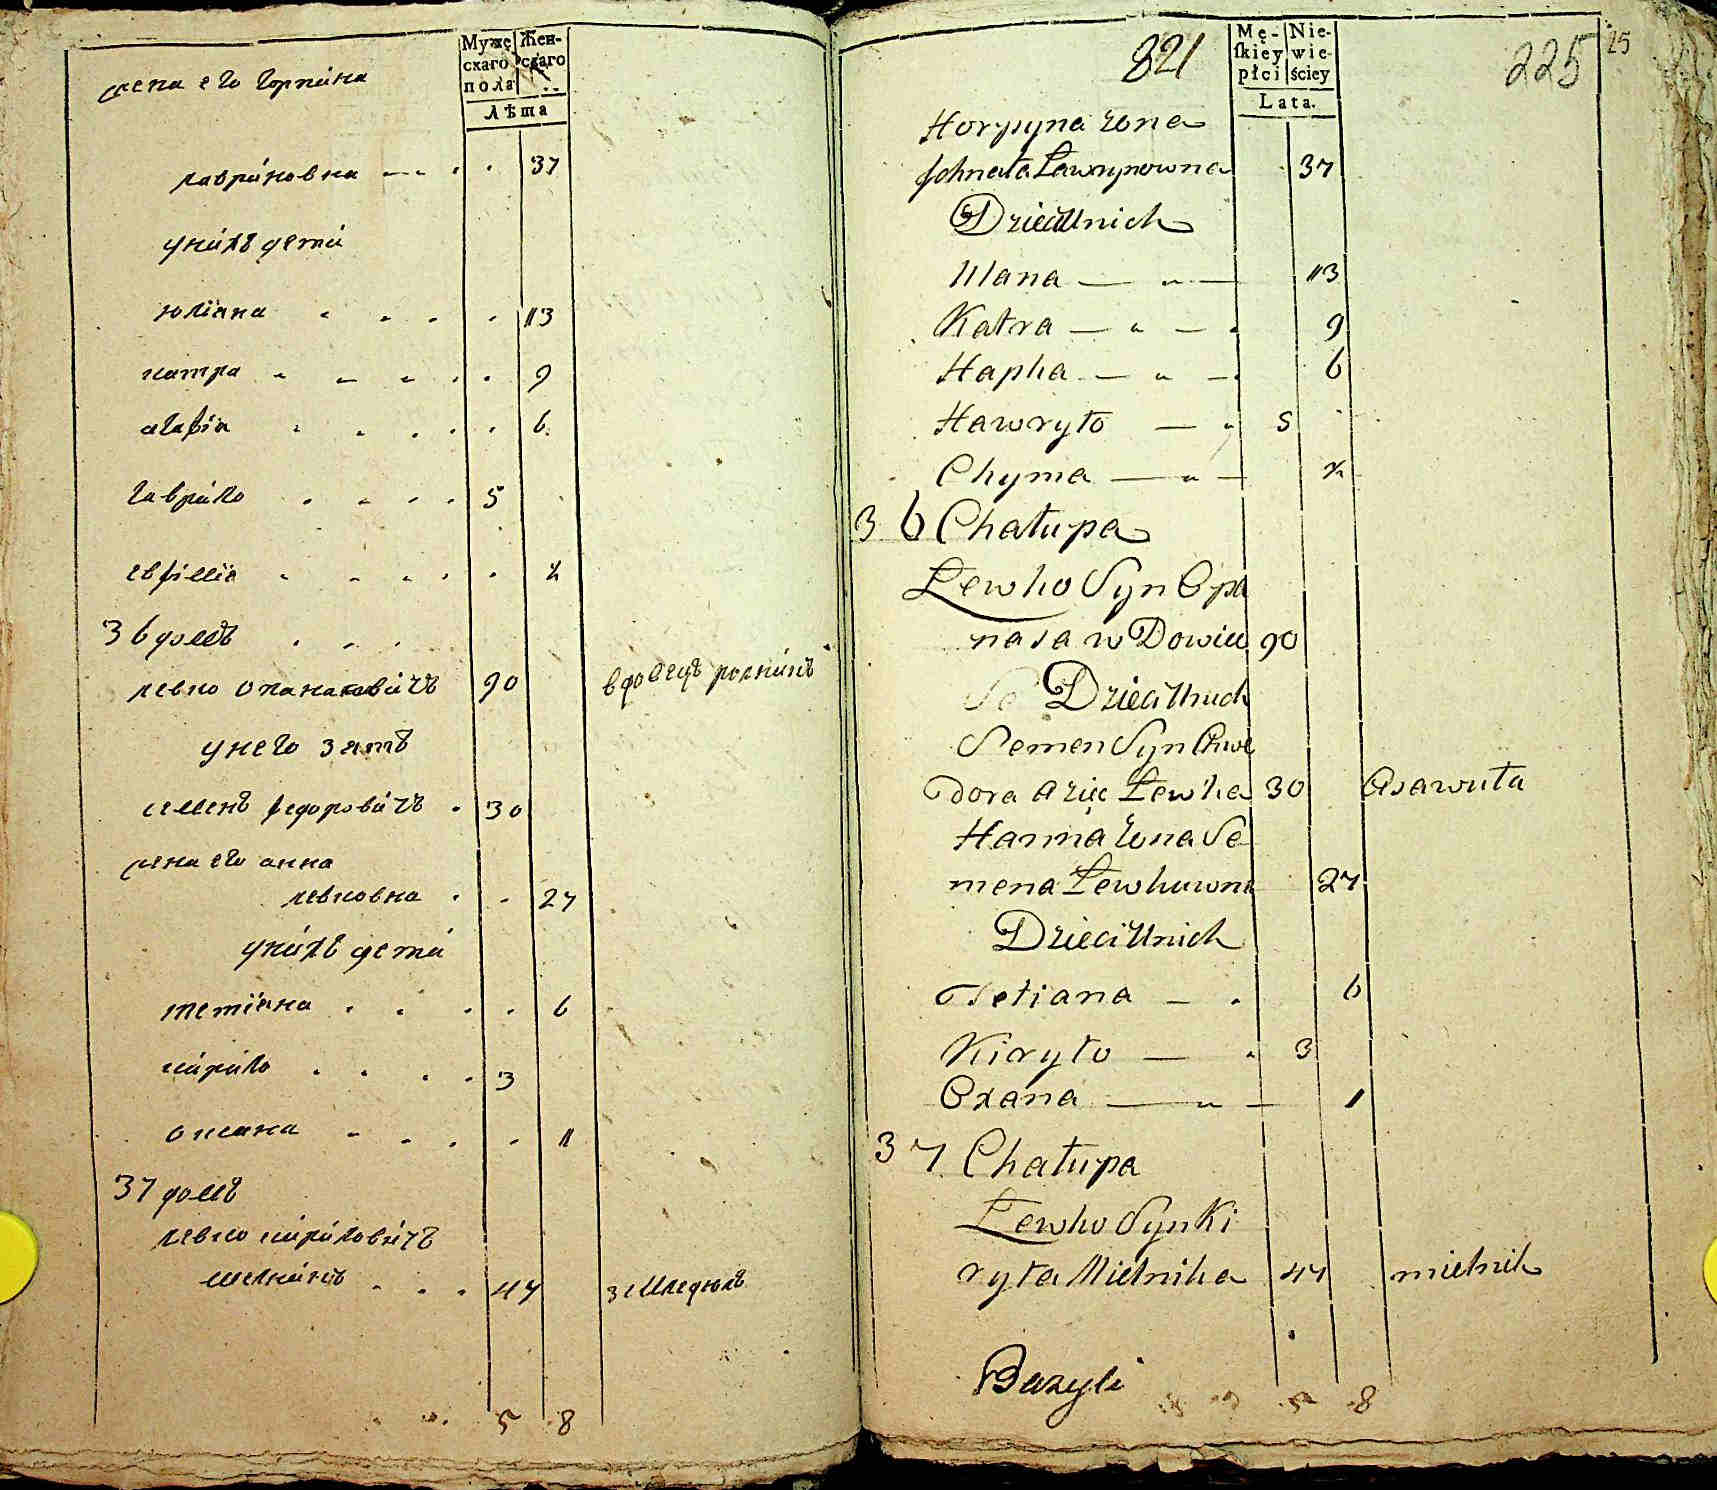 Мужескаго пола
Женскаго
Лѣта
жена его Горпина
лавриновна 37
уних дети
юліана 13
катра 9
агафія 6
гаврило 5
евфимія 2
36 домъ
левко опанасовичъ 90 вдовецъ
унего зять
семенъ федоровичъ 30
жена его анна
левковна 27
унихъ дети
тетіяна 6
кирило 3
оксана 1
37 домъ
левко кириловичъ
мелникъ 47
5 8
821
Mę-skiey płci
Nie-wie-ściey
Lata.
225
25
Horpyna żona
Ławrynowna 37
Dzieci Unich
Ulana 13
Katra 9
Hapha 6
Hawryło 5
Chyma 2
36 Chałupa
Lewko Syn Opa
nasa wDowiec 90
Dzieci Unich
Semen Syn Chwe
dora Zięć Lewka 30 Asawuła
Hanna żona Se
mena Lewkuwna 27
Dzieci Unich
Tetiana 6
Kiryło 3
Oxana 1
37 Chałupa
Lewko Syn Ki
ryła Mielnika 47 mielnik
Bazyli
5 8